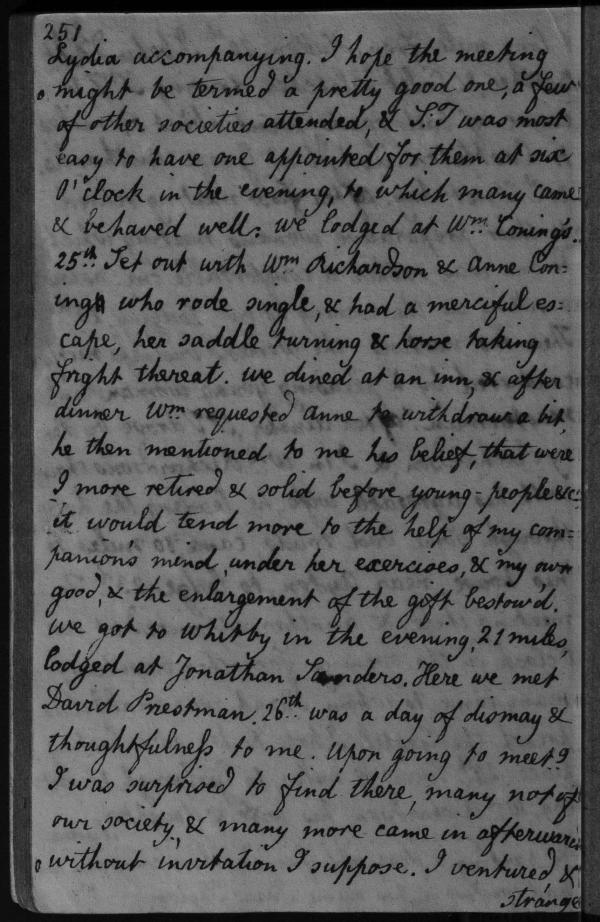 251
Lydia accompanying. I hope the meeting
might be termed a pretty good one, a few
of other societies attended, & S:T was most
easy to have one appointed for them at six
O'clock in the evening, to which many came
& behaved well: we lodged at Wm. Coning's.
25th. Set out with Wm Richardson & Anne Con=
ing who rode single, & had a merciful es=
cape, her saddle turning & horse taking
fright thereat. we dined at an inn, & after
dinner Wm requested Anne to withdraw a bit,
he then mentioned to me his belief, that were
I more retired & solid before young-people &c:
it would tend more to the help of my com=
panion's mind, under her exercises, & my own
good, & the enlargement of the gift bestow'd.
we got to Whitby in the evening, 21 miles,
lodged at Jonathan Sanders. Here we met
David Priestman. 26th. was a day of dismay &
thoughtfulneſs to me. Upon going to meetg
I was surprised to find there, many not of
our society, & many more came in afterwards
without invitation I suppose. I ventured &
strange